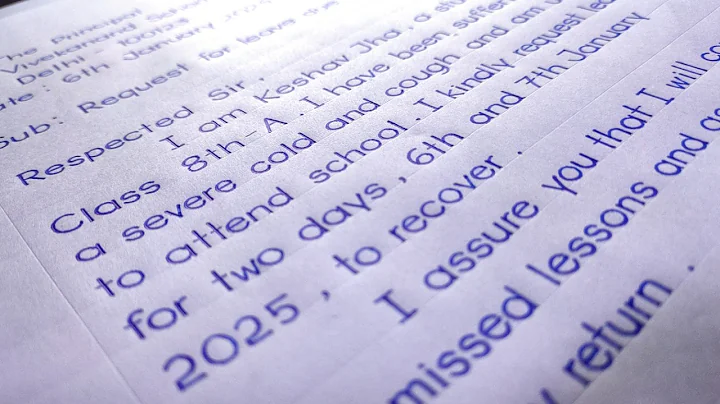 The Principal
Vivekanand School
Delhi - 
Date: 6th January 2025
Sub: Request for leave due
Respected Sir,
I am Keshav Jha, a
Class 8th-A. I have been
a severe cold and cough and am
to attend school. I kindly request
for two days, 6th and 7th January
2025, to recover.
I assure you that I will
missed lessons and
return.